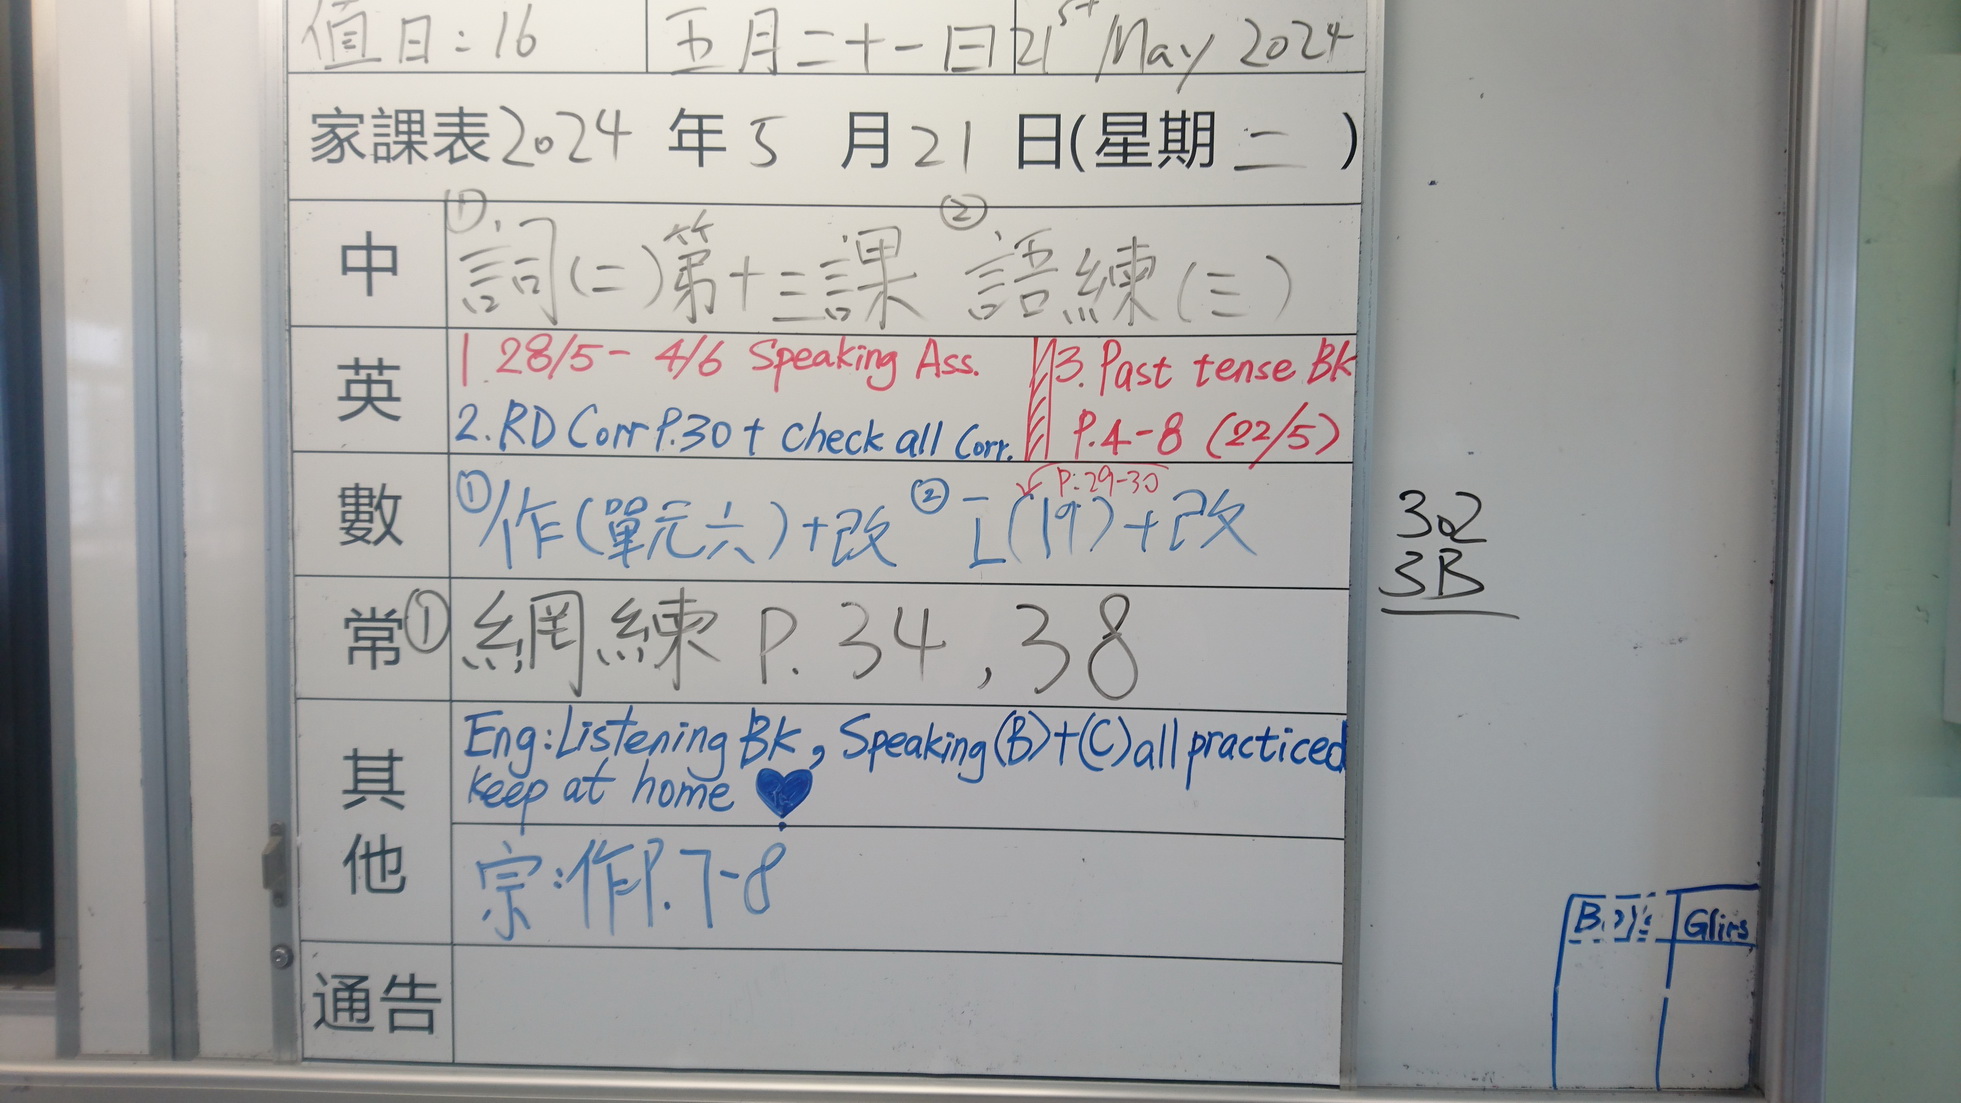 值日:16 五月二十一日 21st May 2024
家課表2024年5月21日(星期二)
中 ①詞(二)第十三課 ②語練(三)
英 1. 28/5 - 4/6 Speaking Ass. 3. Past tense BK
2. RD Corr P.30 + check all Corr. P.4-8 (22/5)
P:29-30
數 ①作(單元六)+改 ②工(19)+改
3Q
3B
常 ①網練 P.34,38
其他 Eng:Listening BK, Speaking(B)+(C)all practiced
keep at home
宗:作P.7-8
Glirs
通告